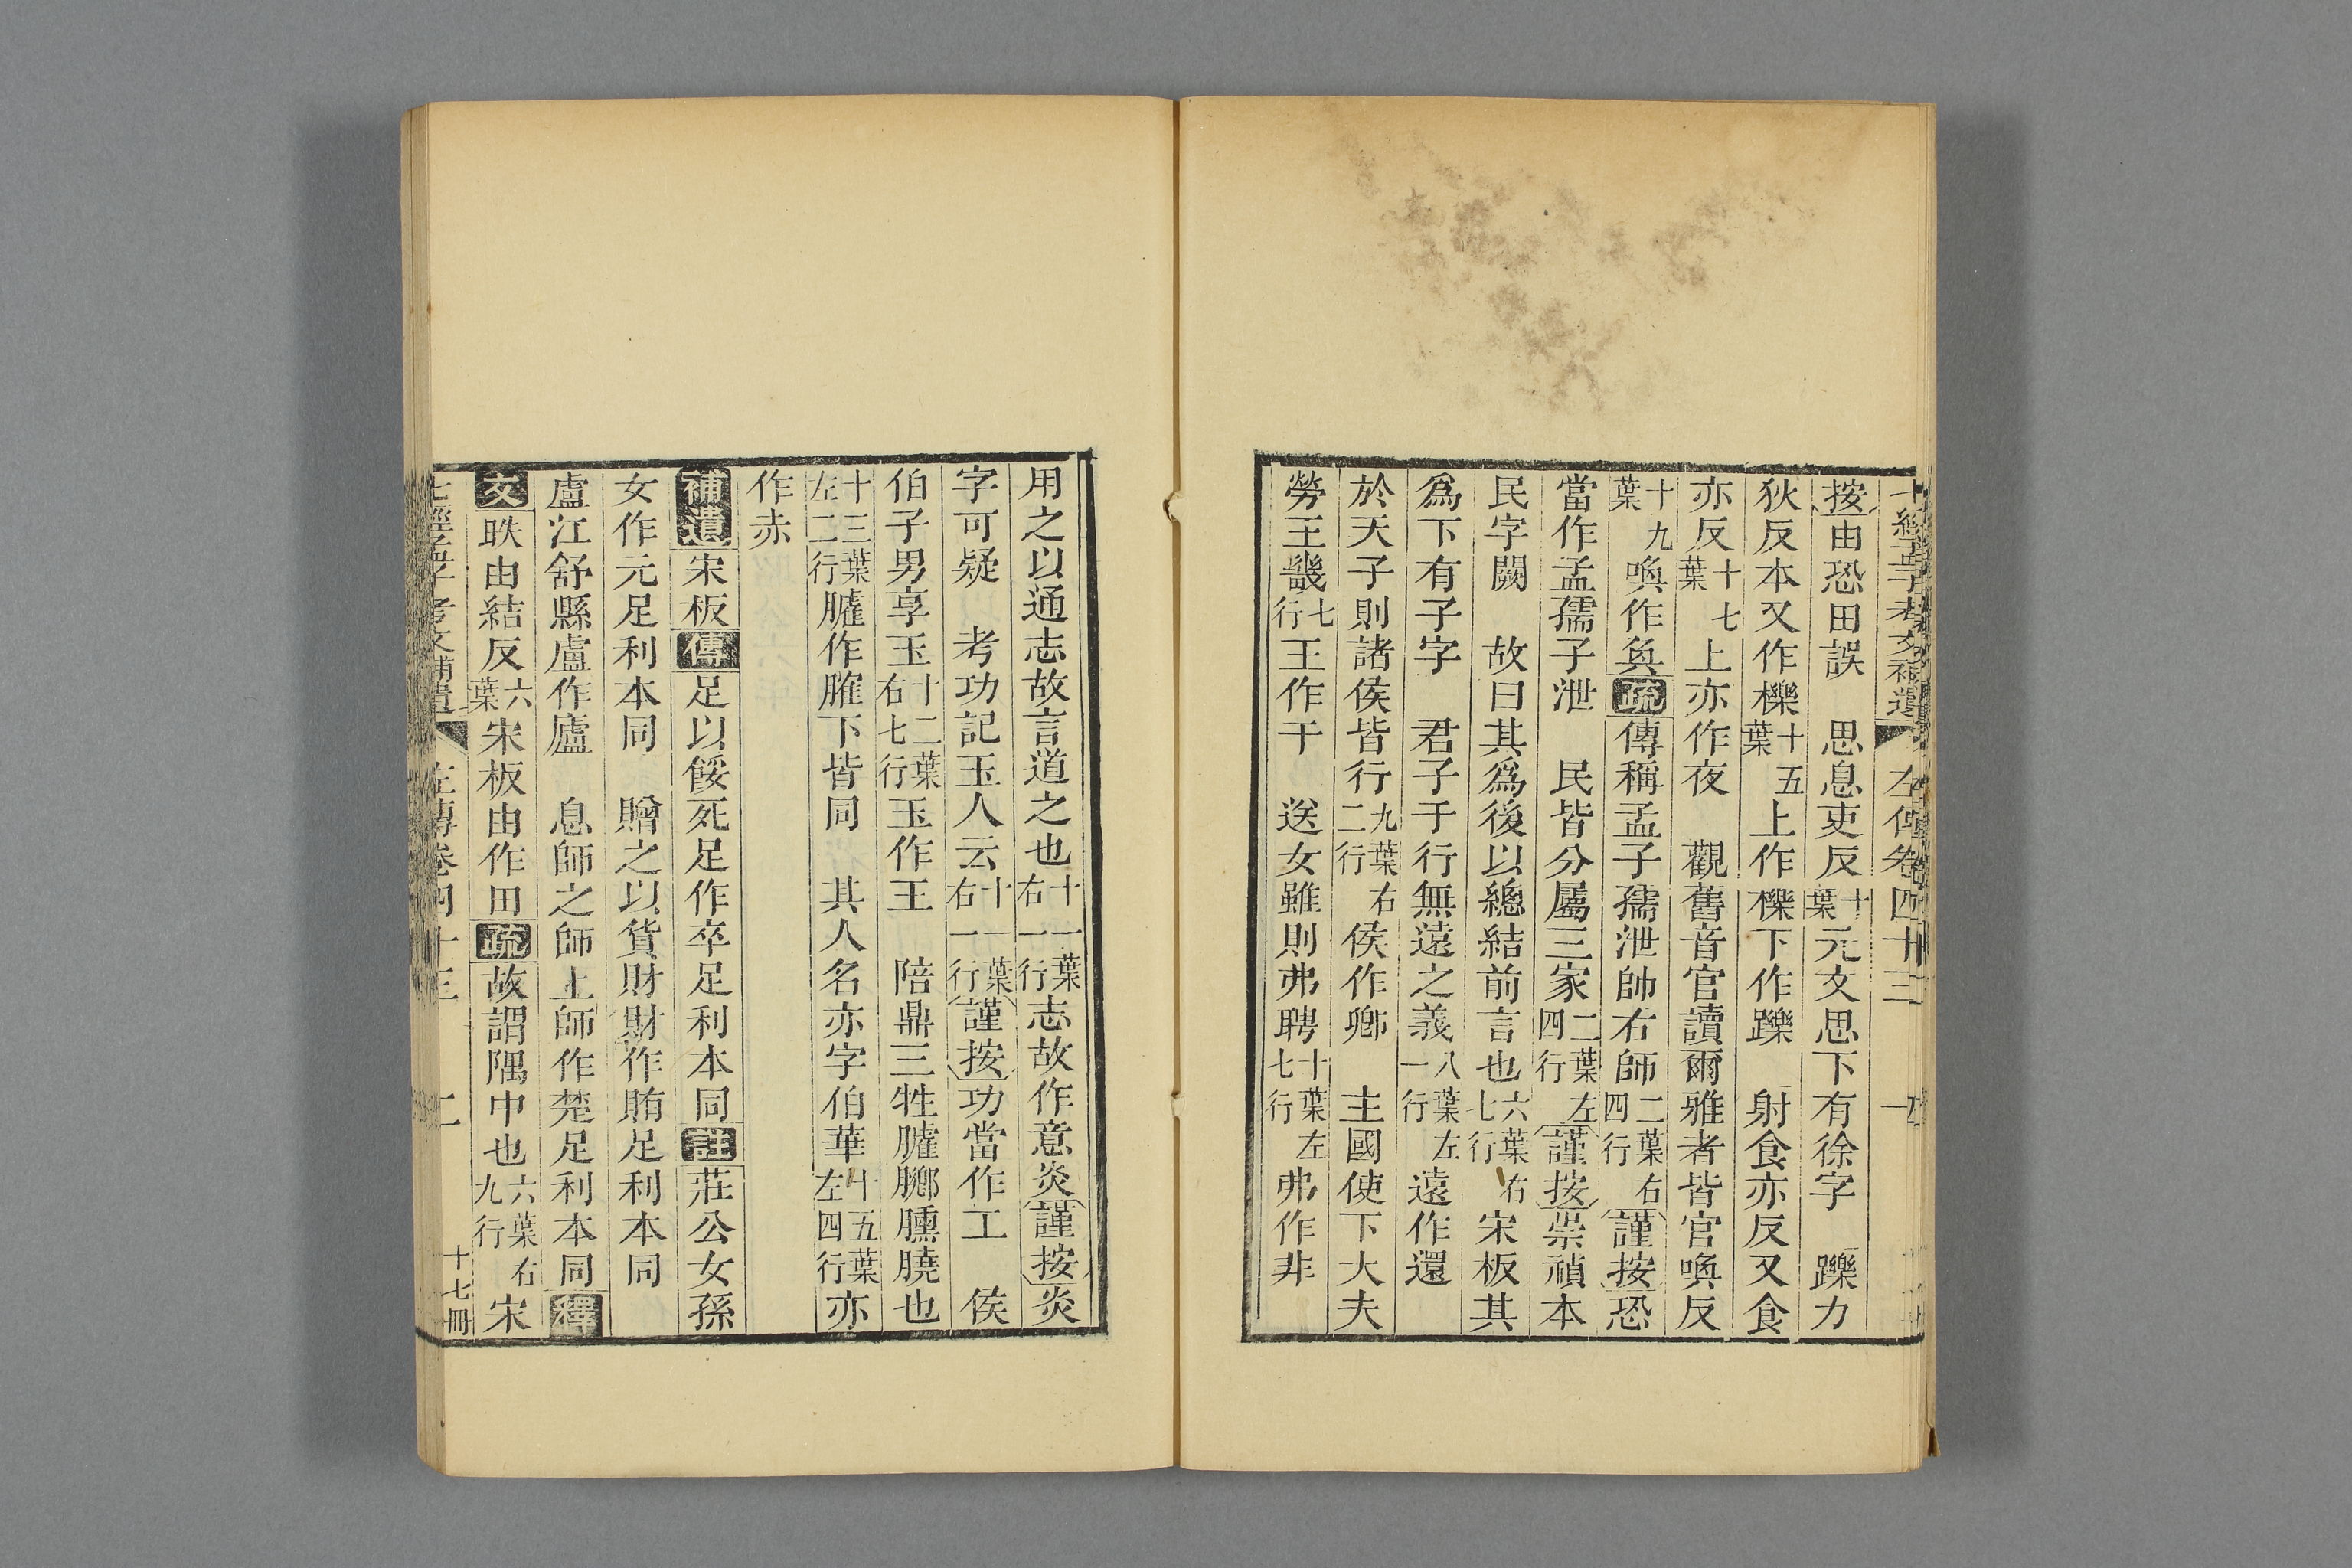 七經孟子考文補遺 左傳卷四十三
按由恐田誤 思息吏反十葉元文思下有徐字 躒力
狄反本又作櫟十五葉上作櫟下作躒 射食亦反又食
亦反十七葉上亦作夜 觀舊音官讀爾雅者皆官喚反
十九葉喚作奐疏傳稱孟子孺泄帥右師二葉右四行謹按恐
當作孟孺子泄 民皆分屬三家二葉左四行謹按崇禎本
民字闕 故曰其爲後以總結前言也六葉右七行宋板其
爲下有子字 君子于行無遠之義八葉左一行遠作還
於天子則諸侯皆行九葉右二行侯作卿 主國使下大夫
勞王畿七行王作于 送女雖則弗聘十葉左七行弗作非
用之以通志故言道之也十一葉右一行志故作意炎謹按炎
字可疑 考功記玉人云十一葉右一行謹按功當作工 侯
伯子男享玉十二葉右七行玉作王 陪鼎三牲臛膷臐膮也
十三葉左二行臛作臛下皆同 其人名亦字伯華十五葉左四行亦
作赤
補遺宋板傳足以餒死足作卒足利本同註莊公女孫
女作元足利本同 贈之以貨財財作賄足利本同
盧江舒縣盧作廬 息師之師上師作楚足利本同釋
文昳由結反六葉宋板由作田疏故謂隅中也六葉右九行宋
七經孟子考文補遺 左傳卷四十三 二 十七冊